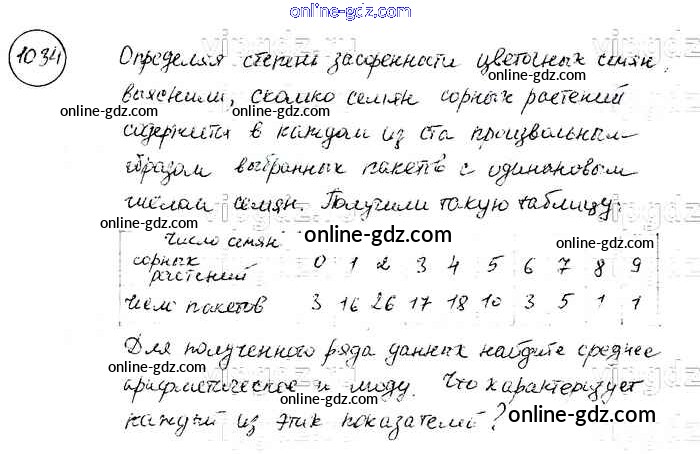 online-gdz.com
1034
Определяя степень засоренности цветочных семян,
выяснили, сколько семян сорных растений
online-gdz.com online-gdz.com
содержится в каждом из ста произвольным
образом выбранных пакетов с одинаковым
online-gdz.com online-gdz.com
числом семян. Получили такую таблицу:
online-gdz.com
Число семян
сорных
растений 0 1 2 3 4 5 6 7 8 9
online-gdz.com online-gdz.com
Число пакетов 3 16 26 17 18 10 3 5 1 1
online-gdz.com
Для полученного ряда данных найдите среднее
online-gdz.com online-gdz.com
арифметическое и моду. Что характеризует
каждый из этих показателей?
online-gdz.com